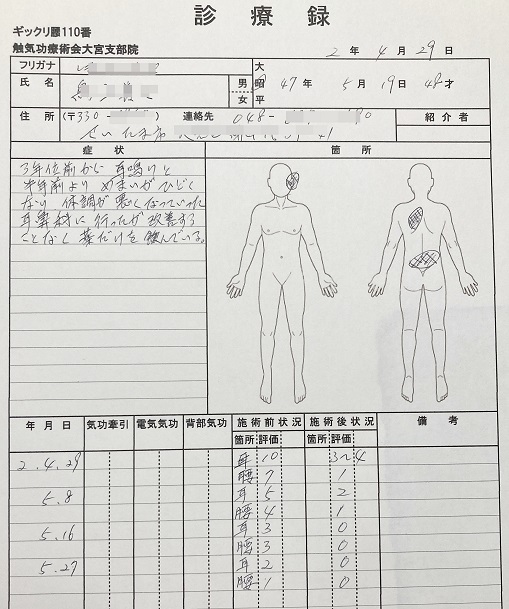 診療録
ギックリ腰110番
触気功療術会大宮支部院
2年4月29日
フリガナ
大
氏名
男 昭 47年 5月19日 48才
女 平
住所 (〒330- 連絡先 048- 紹介者
症状 箇所
3年位前から耳鳴りと
半年前よりめまいがひどく
なり体調が悪くなっていった
耳鼻科に行ったが改善する
ことなく薬だけを飲んでいる。
年月日 気功牽引 電気気功 背部気功 施術前状況 施術後状況 備考
箇所 評価 箇所 評価
2.4.29 耳 10 3~4
腰 7 1
5.8 耳 5 2
腰 4 1
5.16 耳 3 0
腰 3 0
5.27 耳 2 0
腰 1 0